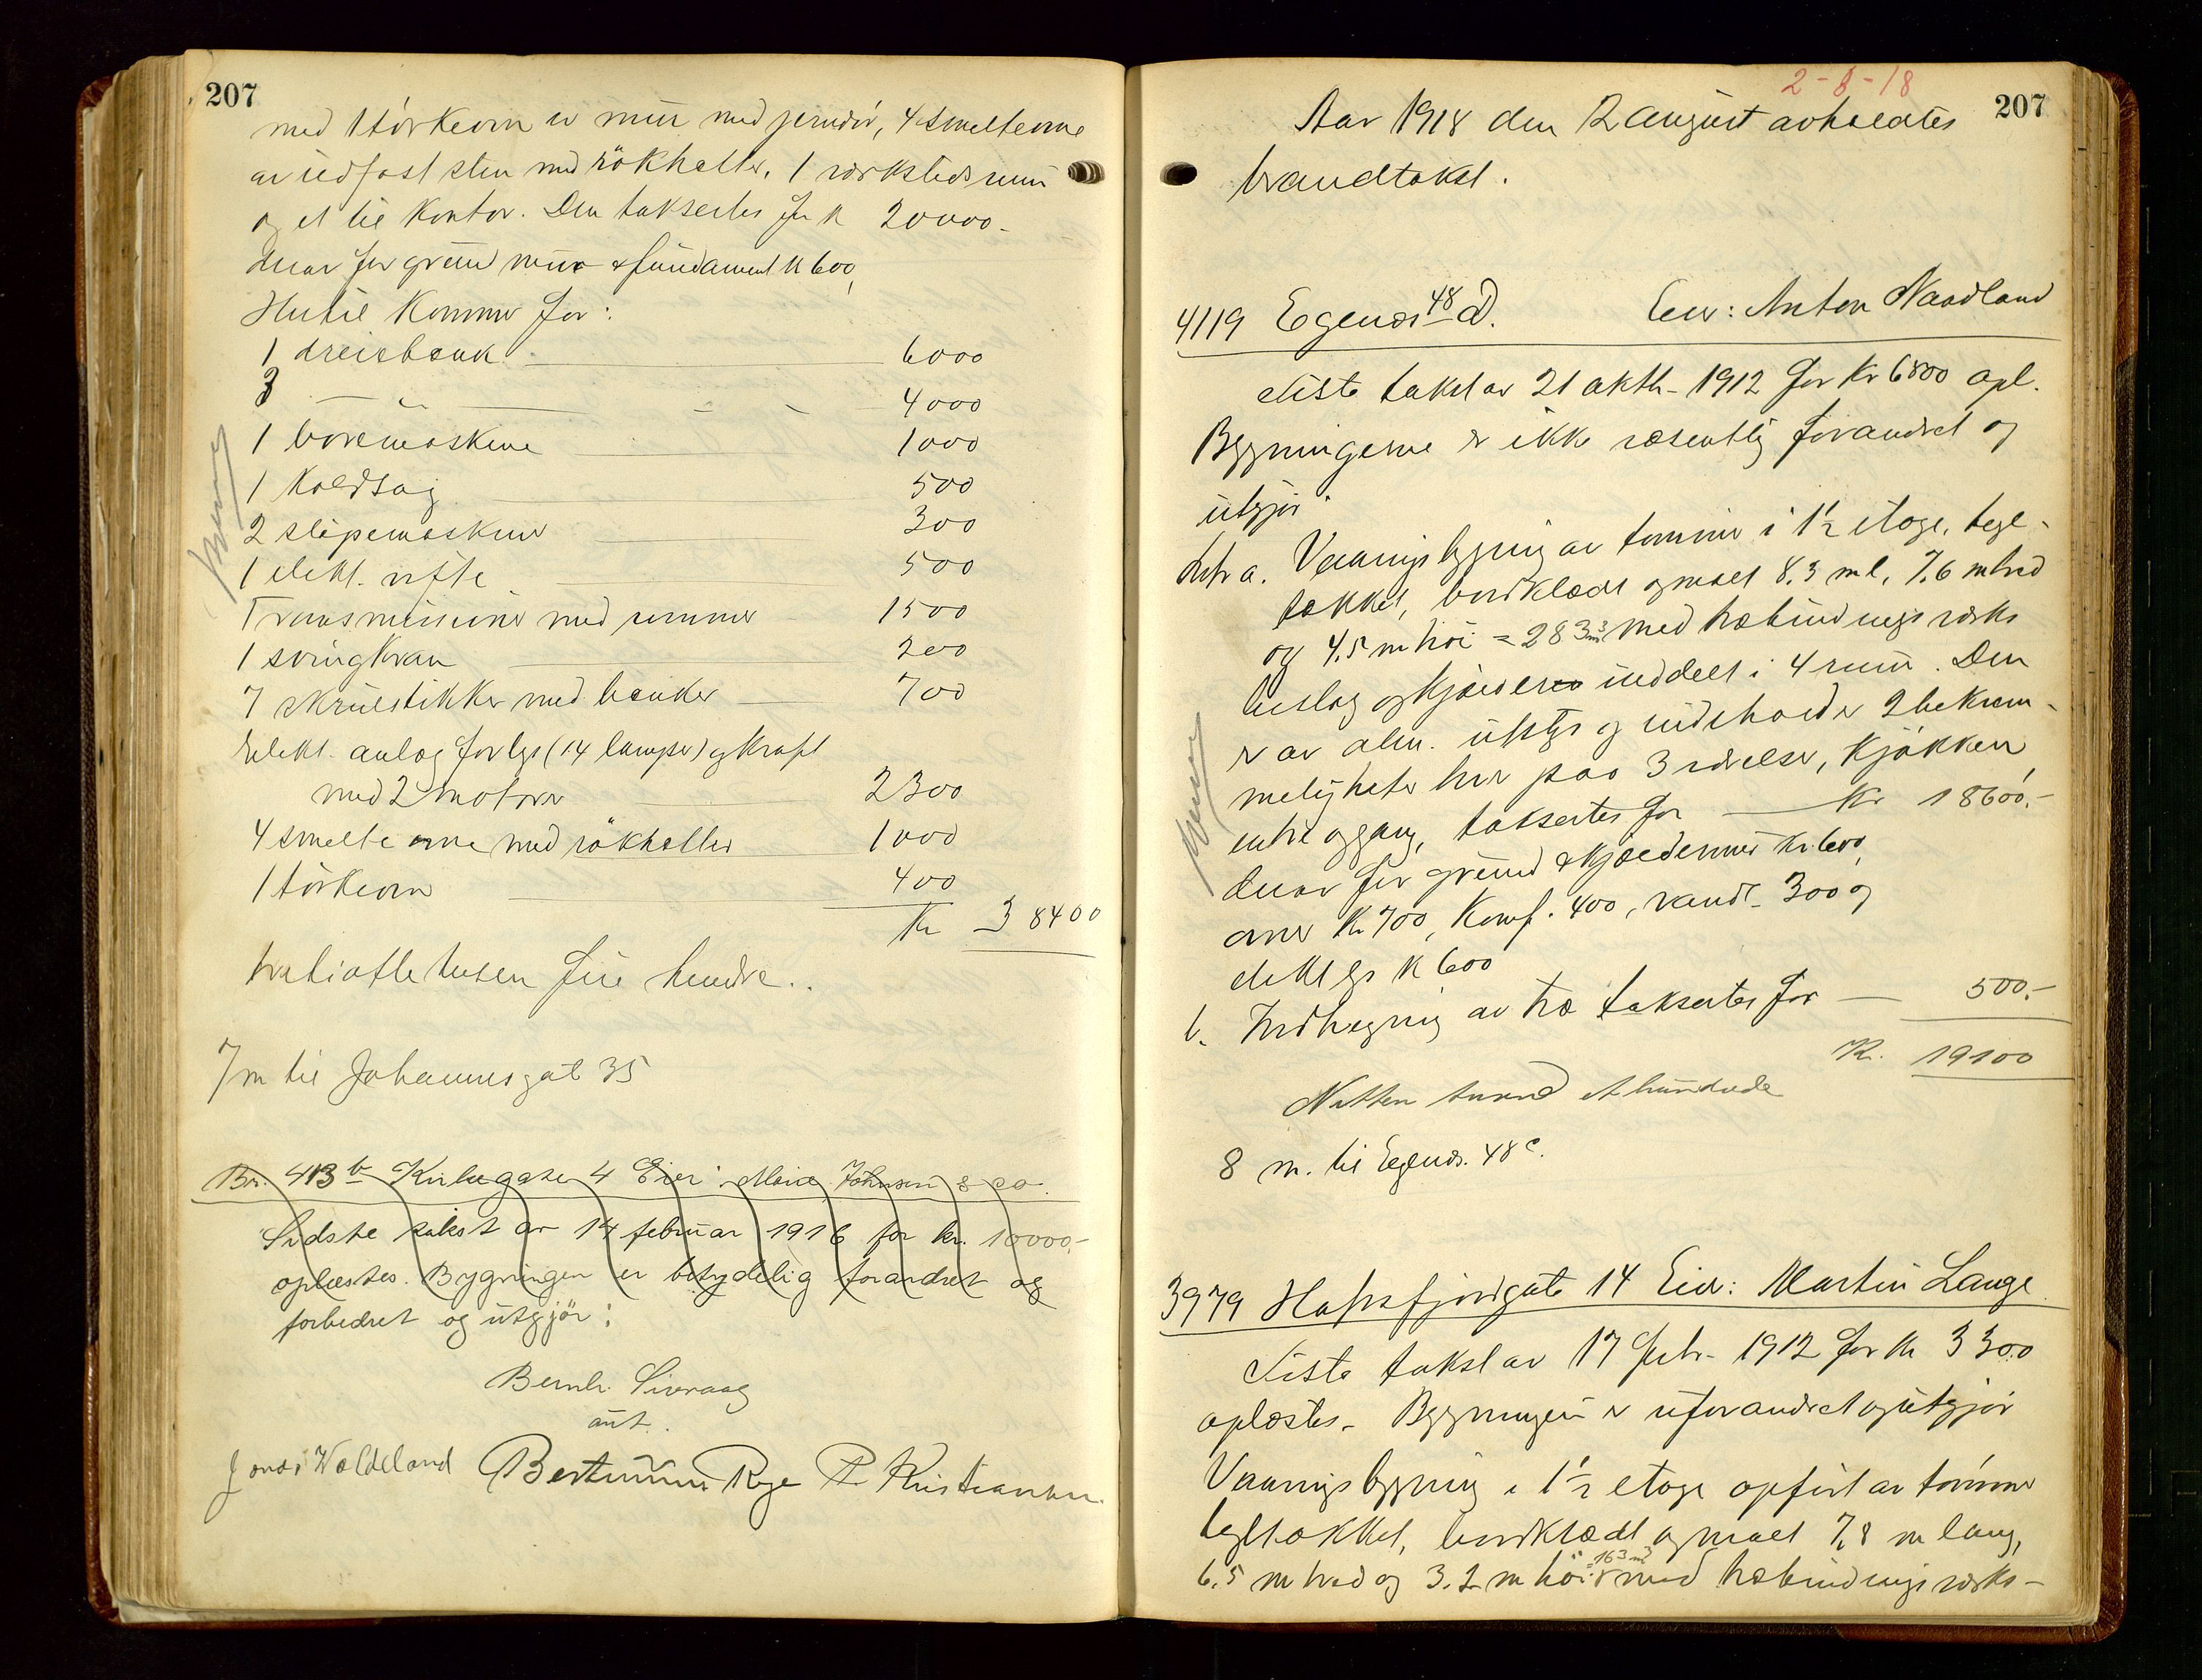 207
med 1 törkeovn av mur med jerndör, 4 smelteovne
av ildfast sten med rökhatter, 1 verkstedsrum
og et til kontor. Den taksertes for k 20000-
derav for grund mur & fundament k 600,
Hertil kommer for:
1 dreiebenk 6000
3 — " — 4000
1 boremaskine 1000
1 koldsag 500
2 slipemaskiner 300
1 elekt. vifte 500
Transmissioner med remmer 1500
1 svingkran 200
7 skruestikker med benker 700
Elekt. anlæg for lys (14 lamper) og kraft
med 2 motorer 2300
4 smelteovne med rökhatter 1000
1 törkeovn 400
Kr 38400
tretiotte tusen fire hundre..
7 m til Johannesgat 35
Br. 413b Kirkegaten 4 Eier: Marie Johnsen & co.
Sidste takst av 14 februar 1916 for kr. 10000.-
oplæstes. Bygningen er betydelig forandret og
forbedret og utgjör:
Bernh. Sivraag
aut.
Jonas Woldeland Bertinius Rege P Kristiansen.
2-8-18
207
Aar 1918 den 2 august avholdtes
brandtakst.
4119 Egenæs 48 d. Eier: Anton Naadland
Siste takst av 21 oktb- 1912 for kr 6800 opl.
Bygningerne er ikke væsentlig forandret og
utgjör:
Litr a. Vaaningsbygning av tømmer i 1½ etage, tegl-
tækket, bordklædt og maalt 8.3 m l, 7.6 m bred
og 4.5 m höi = 283 m³ med træbindingsverks
beslag og kjælder inddelt i 4 rum. Den
er av alm. utstyr og indeholder 2 bekvem-
meligheter hver paa 3 værelser, kjökken
entre og gang, taksertes for — kr 18600.-
derav for grund & kjældermur kr. 600,
ovner kr 700, komf. 400, vandl. 300 og
elekt lys k 600
b. Indhegning av træ taksertes for — 500.-
Kr. 19100
Nitten tusend et hundrede
8 m. til Egenæs. 48 c.
3979 Hafrsfjordgate 14 Eier: Martin Lange
Siste takst av 17 febr- 1912 for kr 3300
oplæstes. Bygningen er uforandret og utgjör
Vaaningsbygning i 1½ etage opfört av tömmer
tegltækket, bordklædt og maalt 7,8 m lang,
6.5 m bred og 3.2 m höi = 163 m³ med træbindingsverks-